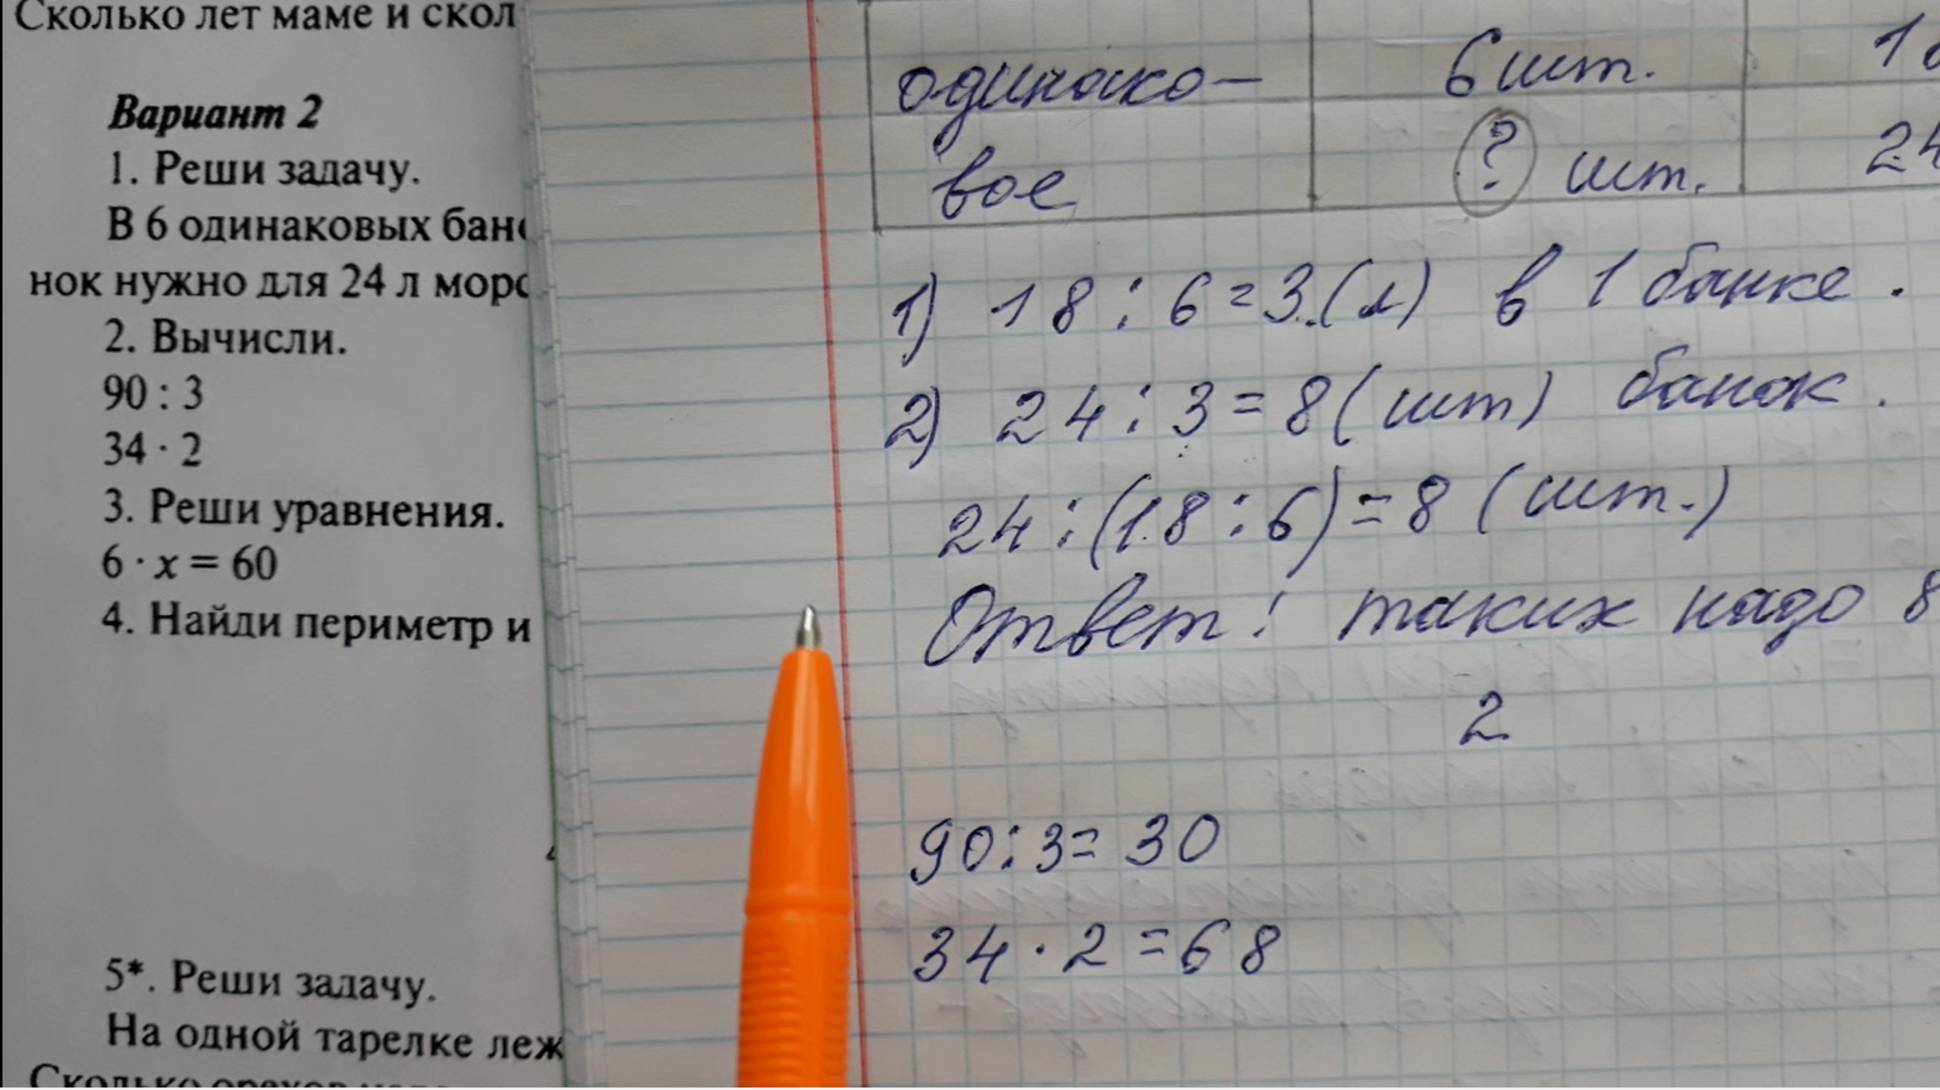 Сколько лет маме и скол
Вариант 2
1. Реши задачу.
В 6 одинаковых бан
нок нужно для 24 л морс
2. Вычисли.
90 : 3
34 · 2
3. Реши уравнения.
6 · x = 60
4. Найди периметр и
5*. Реши задачу.
На одной тарелке леж
одинако- 6 шт. 1
вое ? шт. 24
1) 18 : 6 = 3 (л) в 1 банке.
2) 24 : 3 = 8 (шт) банок.
24 : (18 : 6) = 8 (шт.)
Ответ: таких надо 8
2
90 : 3 = 30
34 · 2 = 68